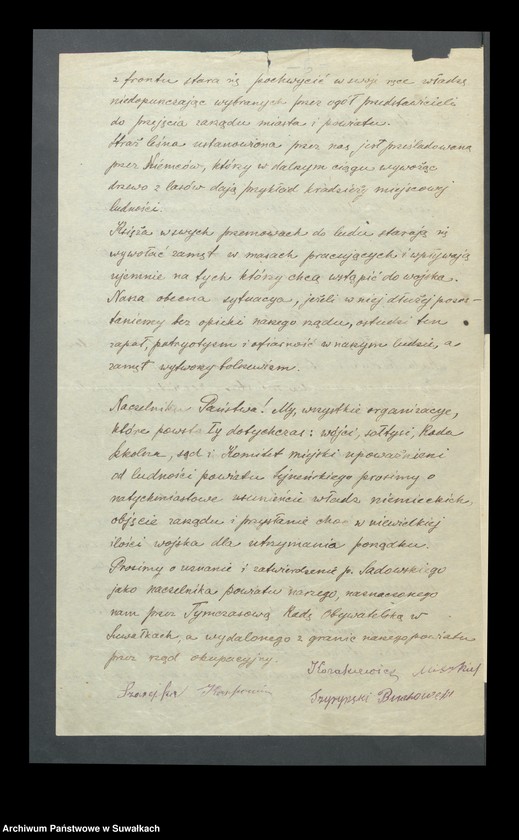 z frontu stara się pochwycić w swoje ręce władzę
niedopuszczając wybranych przez ogół przedstawicieli
do przejęcia zarządu miasta i powiatu.
Straż leśna ustanowiona przez nas jest prześladowana
przez Niemców, którzy w dalszym ciągu wywożąc
drzewo z lasów dają przykład kradzieży miejscowej
ludności.
Księża w swych przemowach do ludu starają się
wywołać zamęt w masach pracujących i wpływają
ujemnie na tych którzy chcą wstąpić do wojska.
Nasza obecna sytuacya, jeśli w niej dłużej pozos-
taniemy bez opieki naszego rządu, ostudzi ten
zapał, patryotyzm i ofiarność w naszym ludzie, a
zamęt wytworzy bolszewizm.
Naczelniku Państwa! My, wszystkie organizacye,
które powstały dotychczas: wójci, sołtysi, Rada
Szkolna, sąd i Komitet miejski upoważnieni
od ludności powiatu Sejneńskiego prosimy o
natychmiastowe usunięcie władz niemieckich,
objęcie zarządu i przysłanie choć w niewielkiej
ilości wojska dla utrzymania porządku.
Prosimy o uznanie i zatwierdzenie p. Sadowskiego
jako naczelnika powiatu naszego, naznaczonego
nam przez Tymczasową Radę Obywatelską w
Suwałkach, a wydalonego z granic naszego powiatu
przez rząd okupacyjny.
Archiwum Państwowe w Suwałkach